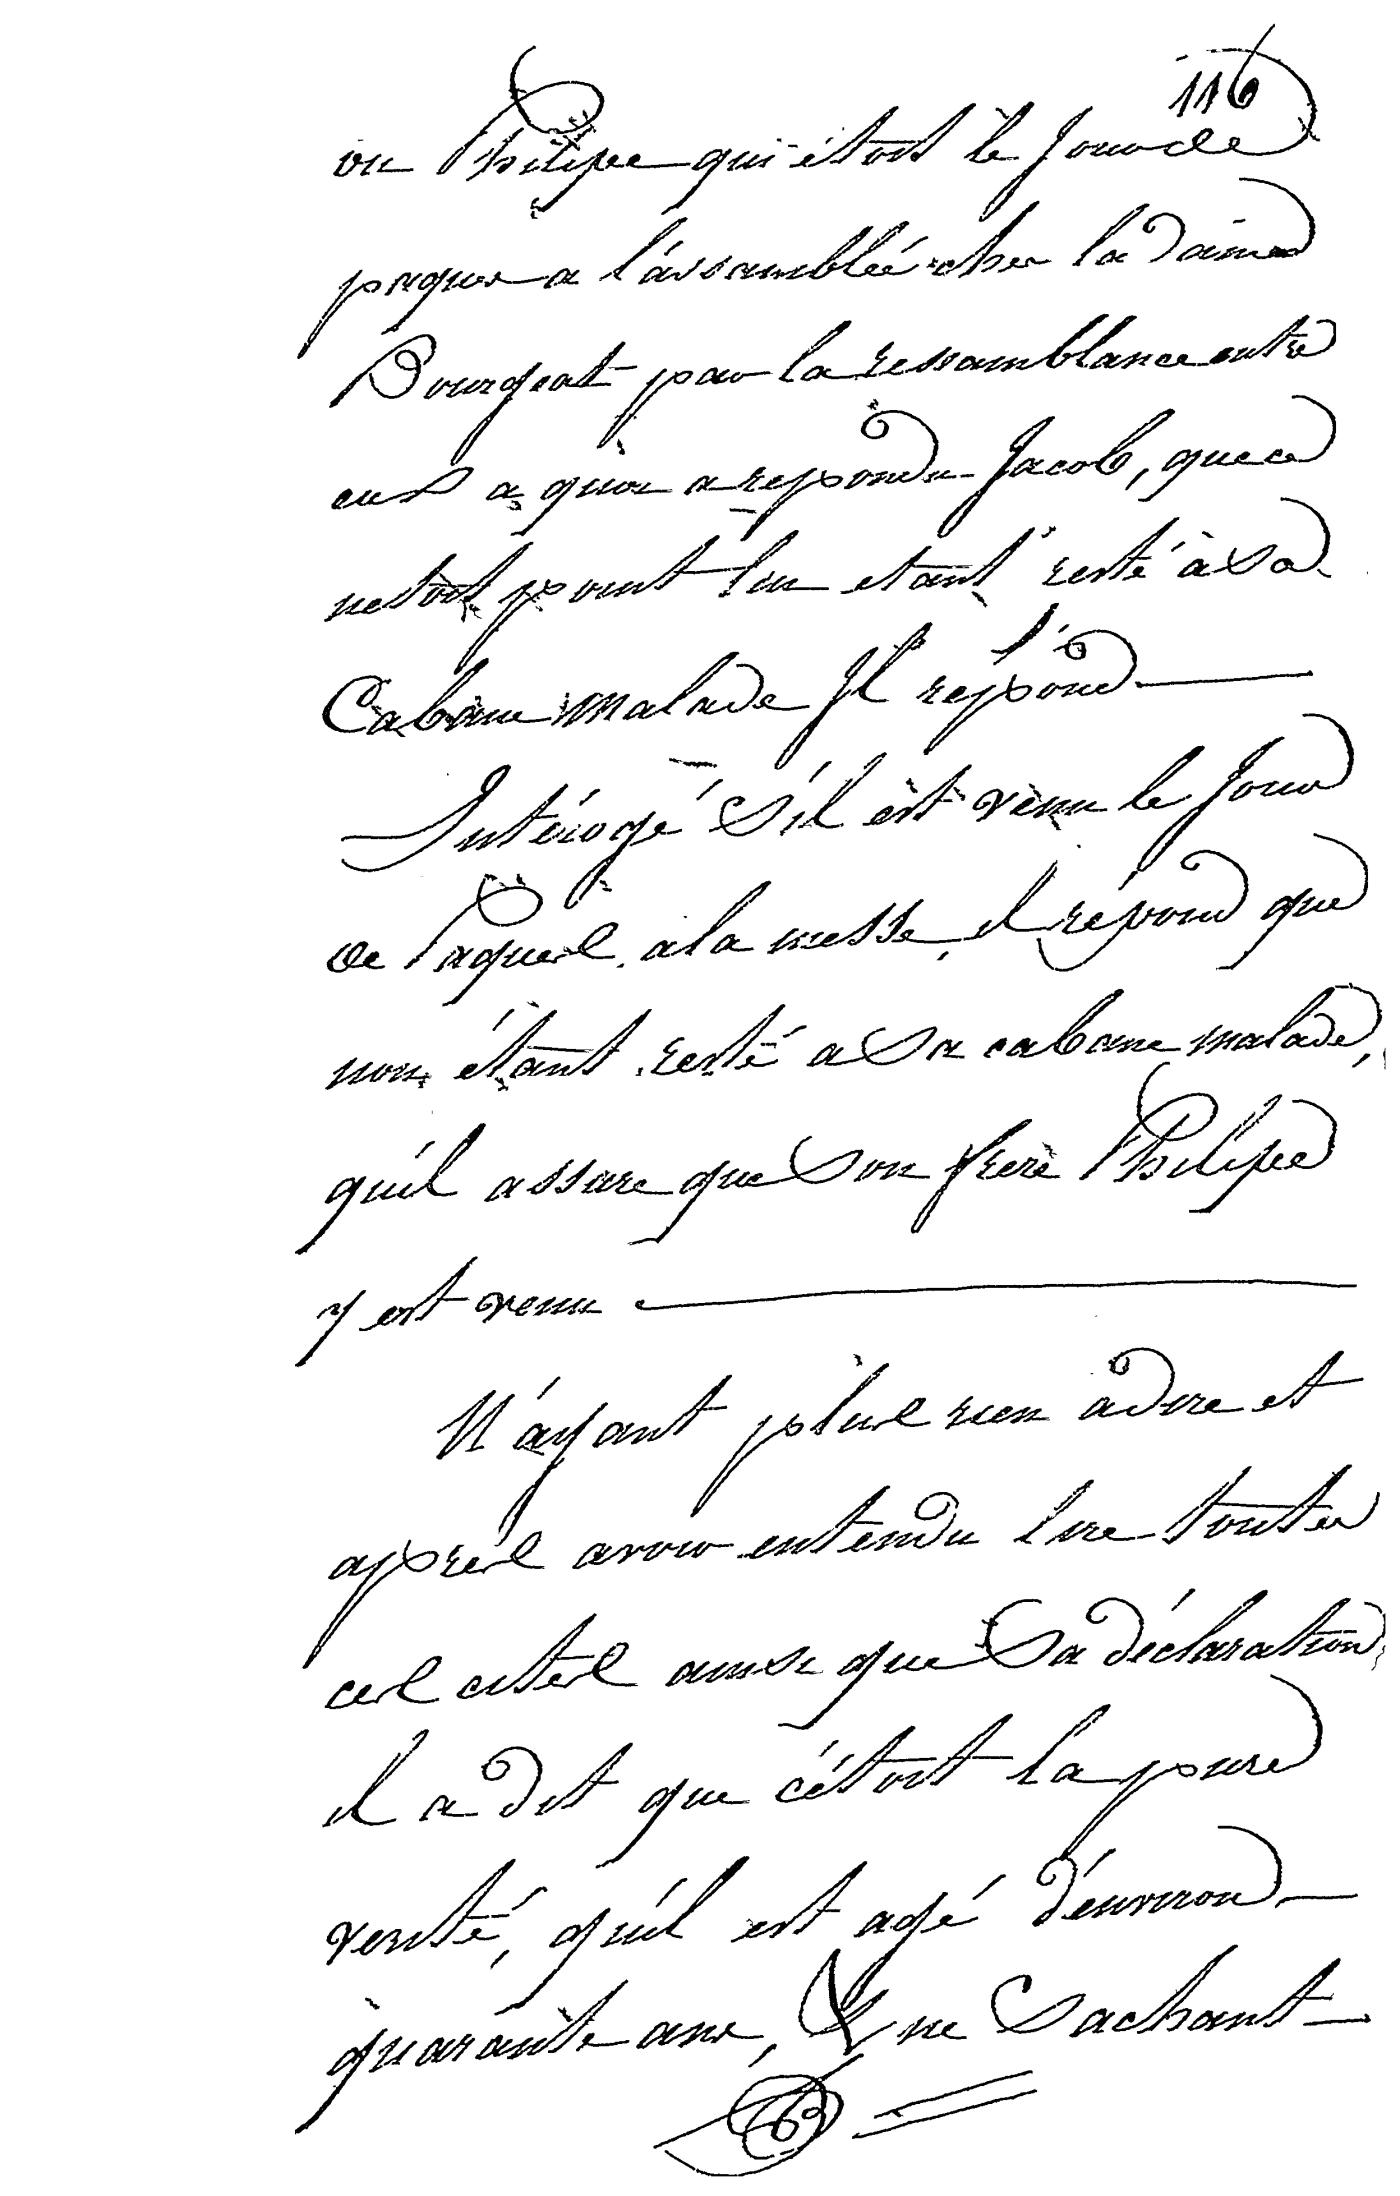 116
ou Philipe qui êtoit le Jour de
paques a l'assamblée chez la dame
Bourgeat par la ressamblance entre
eux a quoi a repondu Jacob, que ce
netoit point lui etant resté à sa
Cabane malade Il répond
Intérogé s'il est venu le Jour
de Paques a la messe, il répond que
non étant resté a sa cabane malade,
qu'il assure que son frere Philipe
y est venu
N'ayant plus rien à dire et
aprés avoir entendu lire toutes
ces cites ainsi que sa déclaration
il a dit que c'étoit la pure
verité, qu'il est agé d'environ
quarante ans, & ne sachant